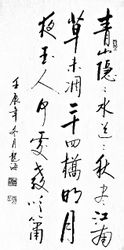 青山隱〻水迢〻秋尽江南
草未凋二十四橋明月
夜玉人何處教吹簫
壬辰年冬月